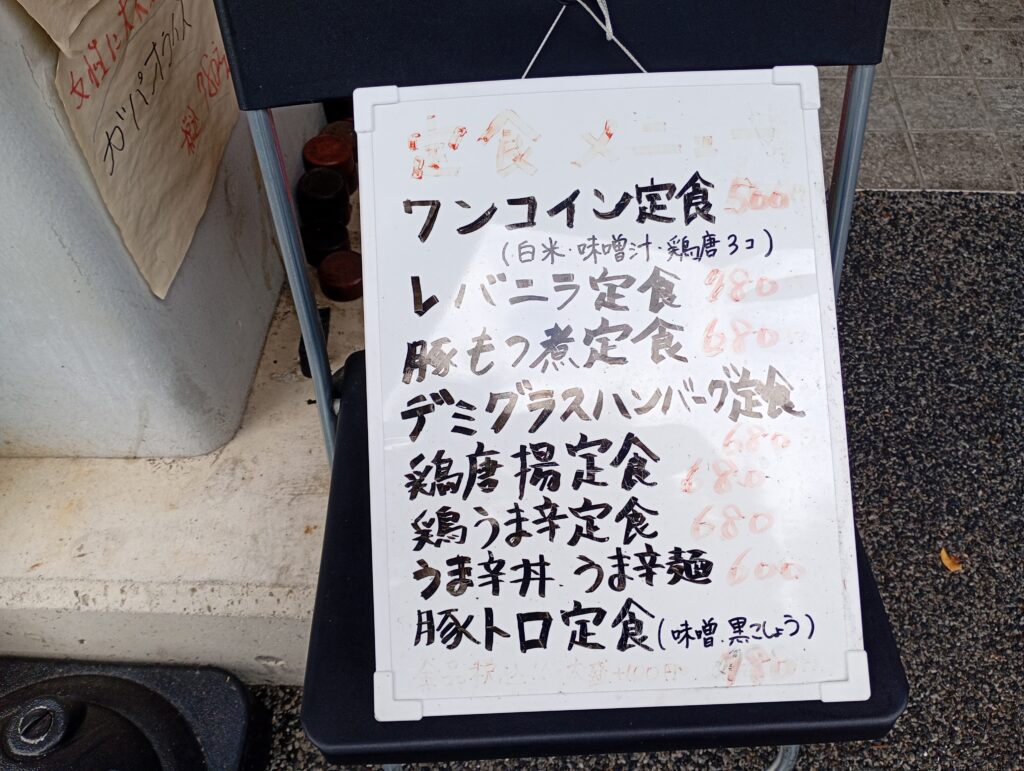 女性に大
ガパオライス
定食メニュー
ワンコイン定食 500
(白米・味噌汁・鶏唐3コ)
レバニラ定食 780
豚もつ煮定食 680
デミグラスハンバーグ定食
680
鶏唐揚定食 680
鶏うま辛定食 680
うま辛丼.うま辛麺 600
豚トロ定食(味噌.黒こしょう)
780
全品税込 大盛+100円